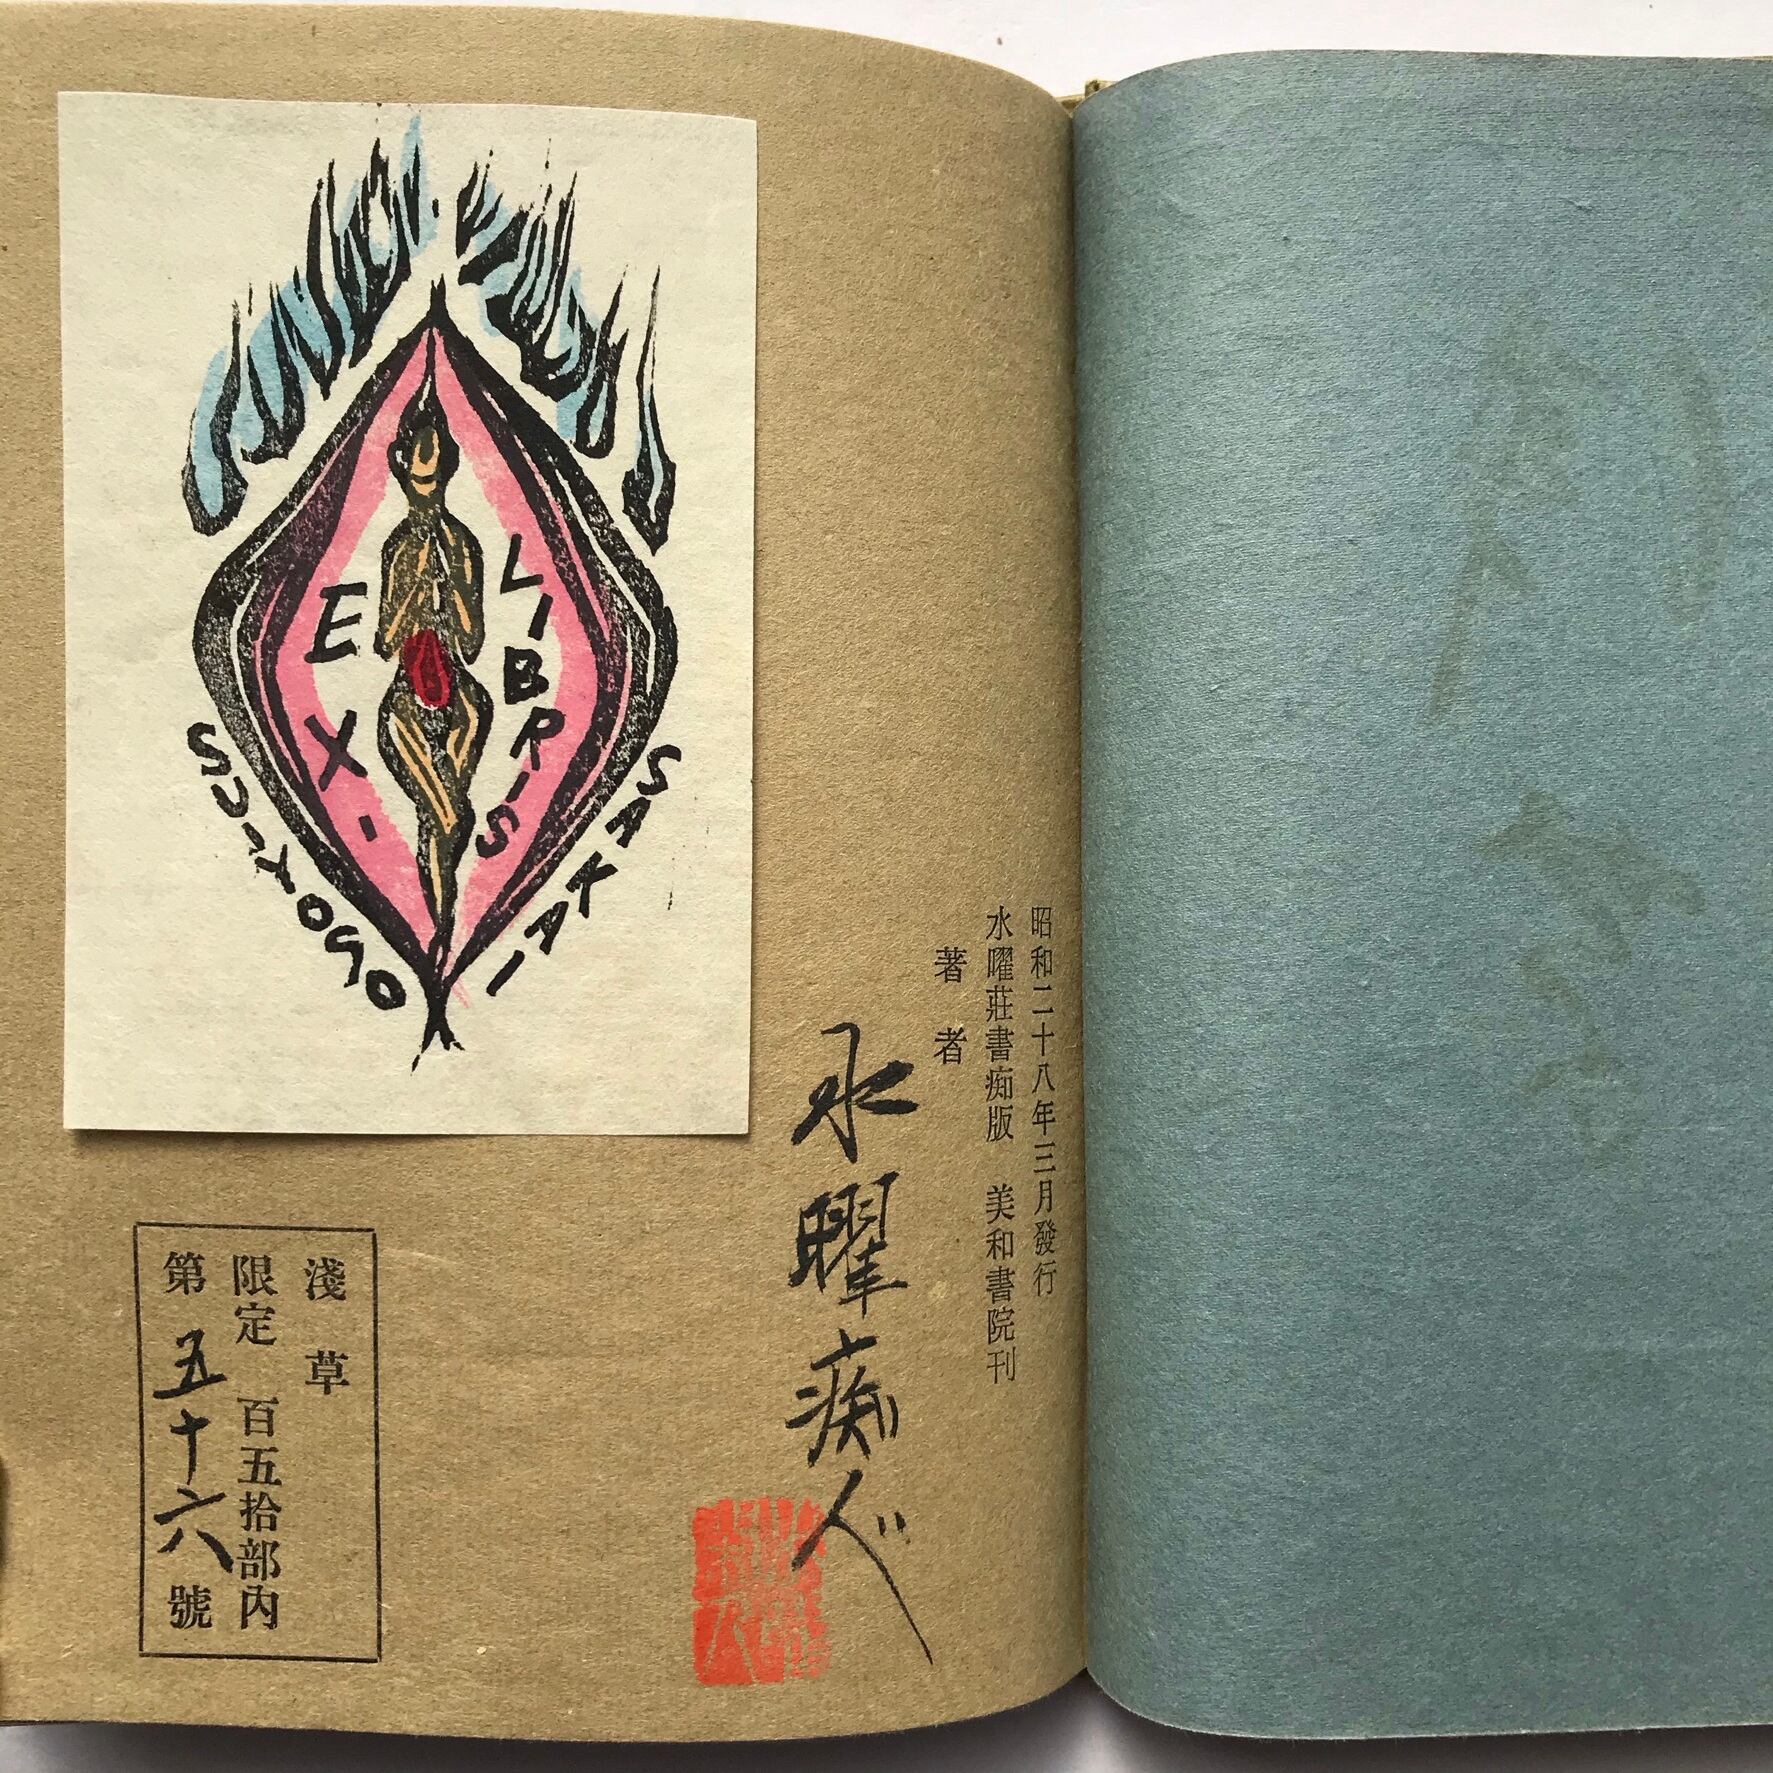 EX-
LIBRIS
SUIYOSO
SAKAI
昭和二十八年三月發行
水曜莊書痴版　美和書院刊
著者
水曜痴人
淺草
限定　百五拾部內
第五十六號